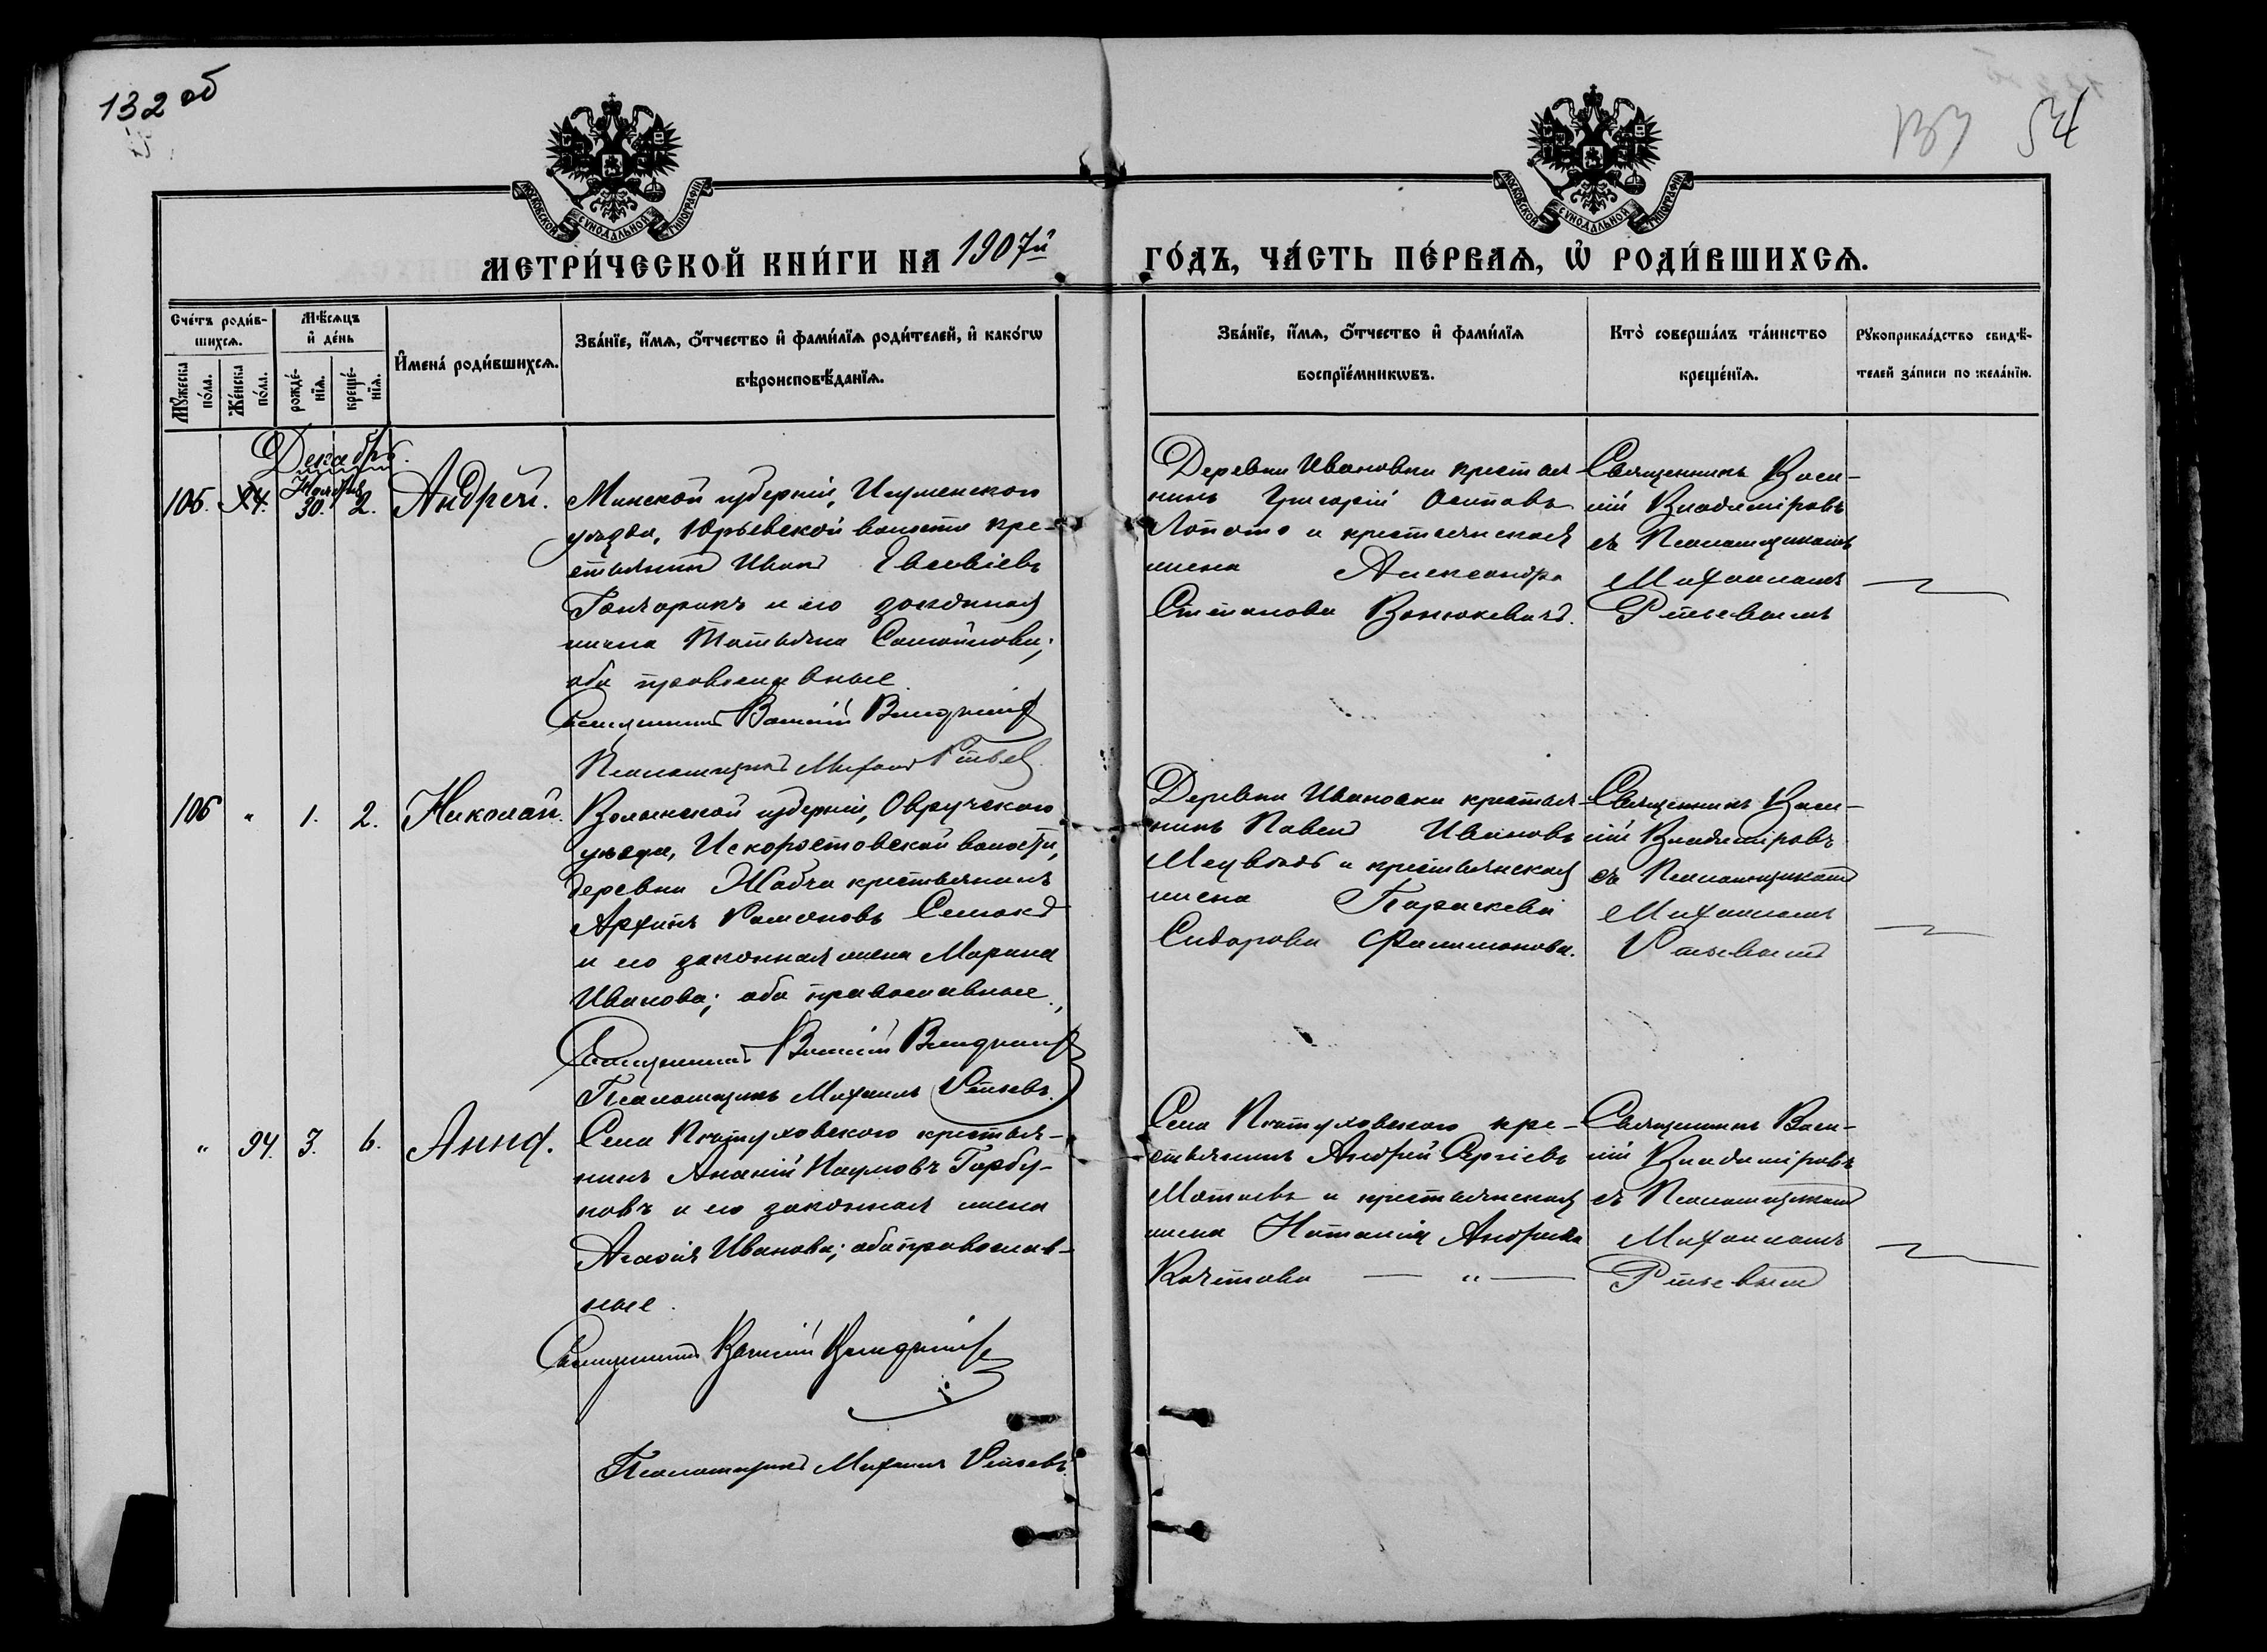 132 об
137 54
МОСКОВСКОЙ СѴНОДАЛЬНОЙ ТИПОГРАФІИ
МОСКОВСКОЙ СѴНОДАЛЬНОЙ ТИПОГРАФІИ
МЕТРИ́ЧЕСКОЙ КНИ́ГИ НА 1907й ГО́ДЪ, ЧА́СТЬ ПЕ́РВАѦ, Ѡ҆ РОДИ́ВШИХСѦ.
Сче́тъ роди́в-
шихсѧ.
Мꙋ́жеска по́ла.
Же́нска по́ла.
Мѣ́сѧцъ
и҆ де́нь
рожде́-
нїѧ.
креще́-
нїѧ.
И҆мена̀ роди́вшихсѧ.
Зва́нїе, и҆́мѧ, ѻ҆́тчество и҆ фами́лїѧ роди́телей, и҆ како́гѡ
вѣроисповѣ́данїѧ.
Зва́нїе, и҆́мѧ, ѻ҆́тчество и҆ фами́лїѧ
воспрїе́мникѡвъ.
Кто̀ соверша́лъ та́инство
креще́нїѧ.
Рꙋкоприкла́дство свидѣ́-
телей за́писи по жела́нїю.
Декабрь.
Ноября
105. 30. 2. Андрей.
Минской губерніи, Игуменскаго
уѣзда, Юрьевской волости кре-
стьянинъ Иванъ Евсевіевъ
Гончарикъ и его законная
жена Татьяна Самойлова;
оба православные
Священникъ Василій Владиміровъ
Псаломщикъ Михаилъ
Деревни Ивановки крестья-
нинъ Григорій Осиповъ
Лопато и крестьянская
жена Александра
Степанова Ванюкевичъ.
Священникъ Васи-
лій Владиміровъ
съ Псаломщикомъ
Михаиломъ
106 " 1. 2. Николай.
Волынской губерніи, Овручскаго
уѣзда, Искоростовской волости,
деревни Жабча крестьянинъ
Архипъ Романовъ Семакъ
и его законная жена Марина
Иванова; оба православные.
Священникъ Василій Владиміровъ
Псаломщикъ Михаилъ
Деревни Ивановки крестья-
нинъ Павелъ Ивановъ
и крестьянская
жена Параскева
Сидорова Филимонова.
Священникъ Васи-
лій Владиміровъ
съ Псаломщикомъ
Михаиломъ
" 94. 3. 6. Анна.
Села Пѣтуховскаго крестья-
нинъ Ананій Наумовъ Горбу-
новъ и его законная жена
Агафія Иванова; оба православ-
ные.
Священникъ Василій Владиміровъ
Псаломщикъ Михаилъ
Села Пѣтуховскаго кре-
стьянинъ Андрей Сергіевъ
и крестьянская
жена Наталія Андреева
Кочетова — " —
Священникъ Васи-
лій Владиміровъ
съ Псаломщикомъ
Михаиломъ